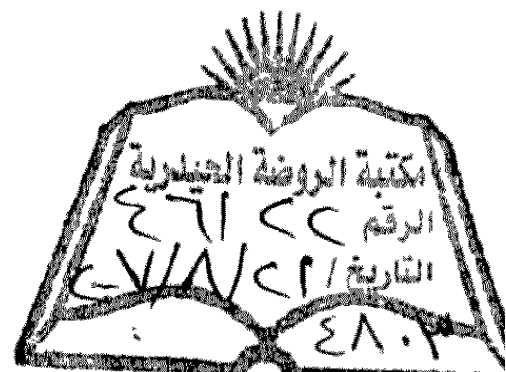 مكتبة الروضة الحيدرية
الرقم ٢٢ ٤٦١
التاريخ / ٢١/٨/٢٧
٤٨٠٢